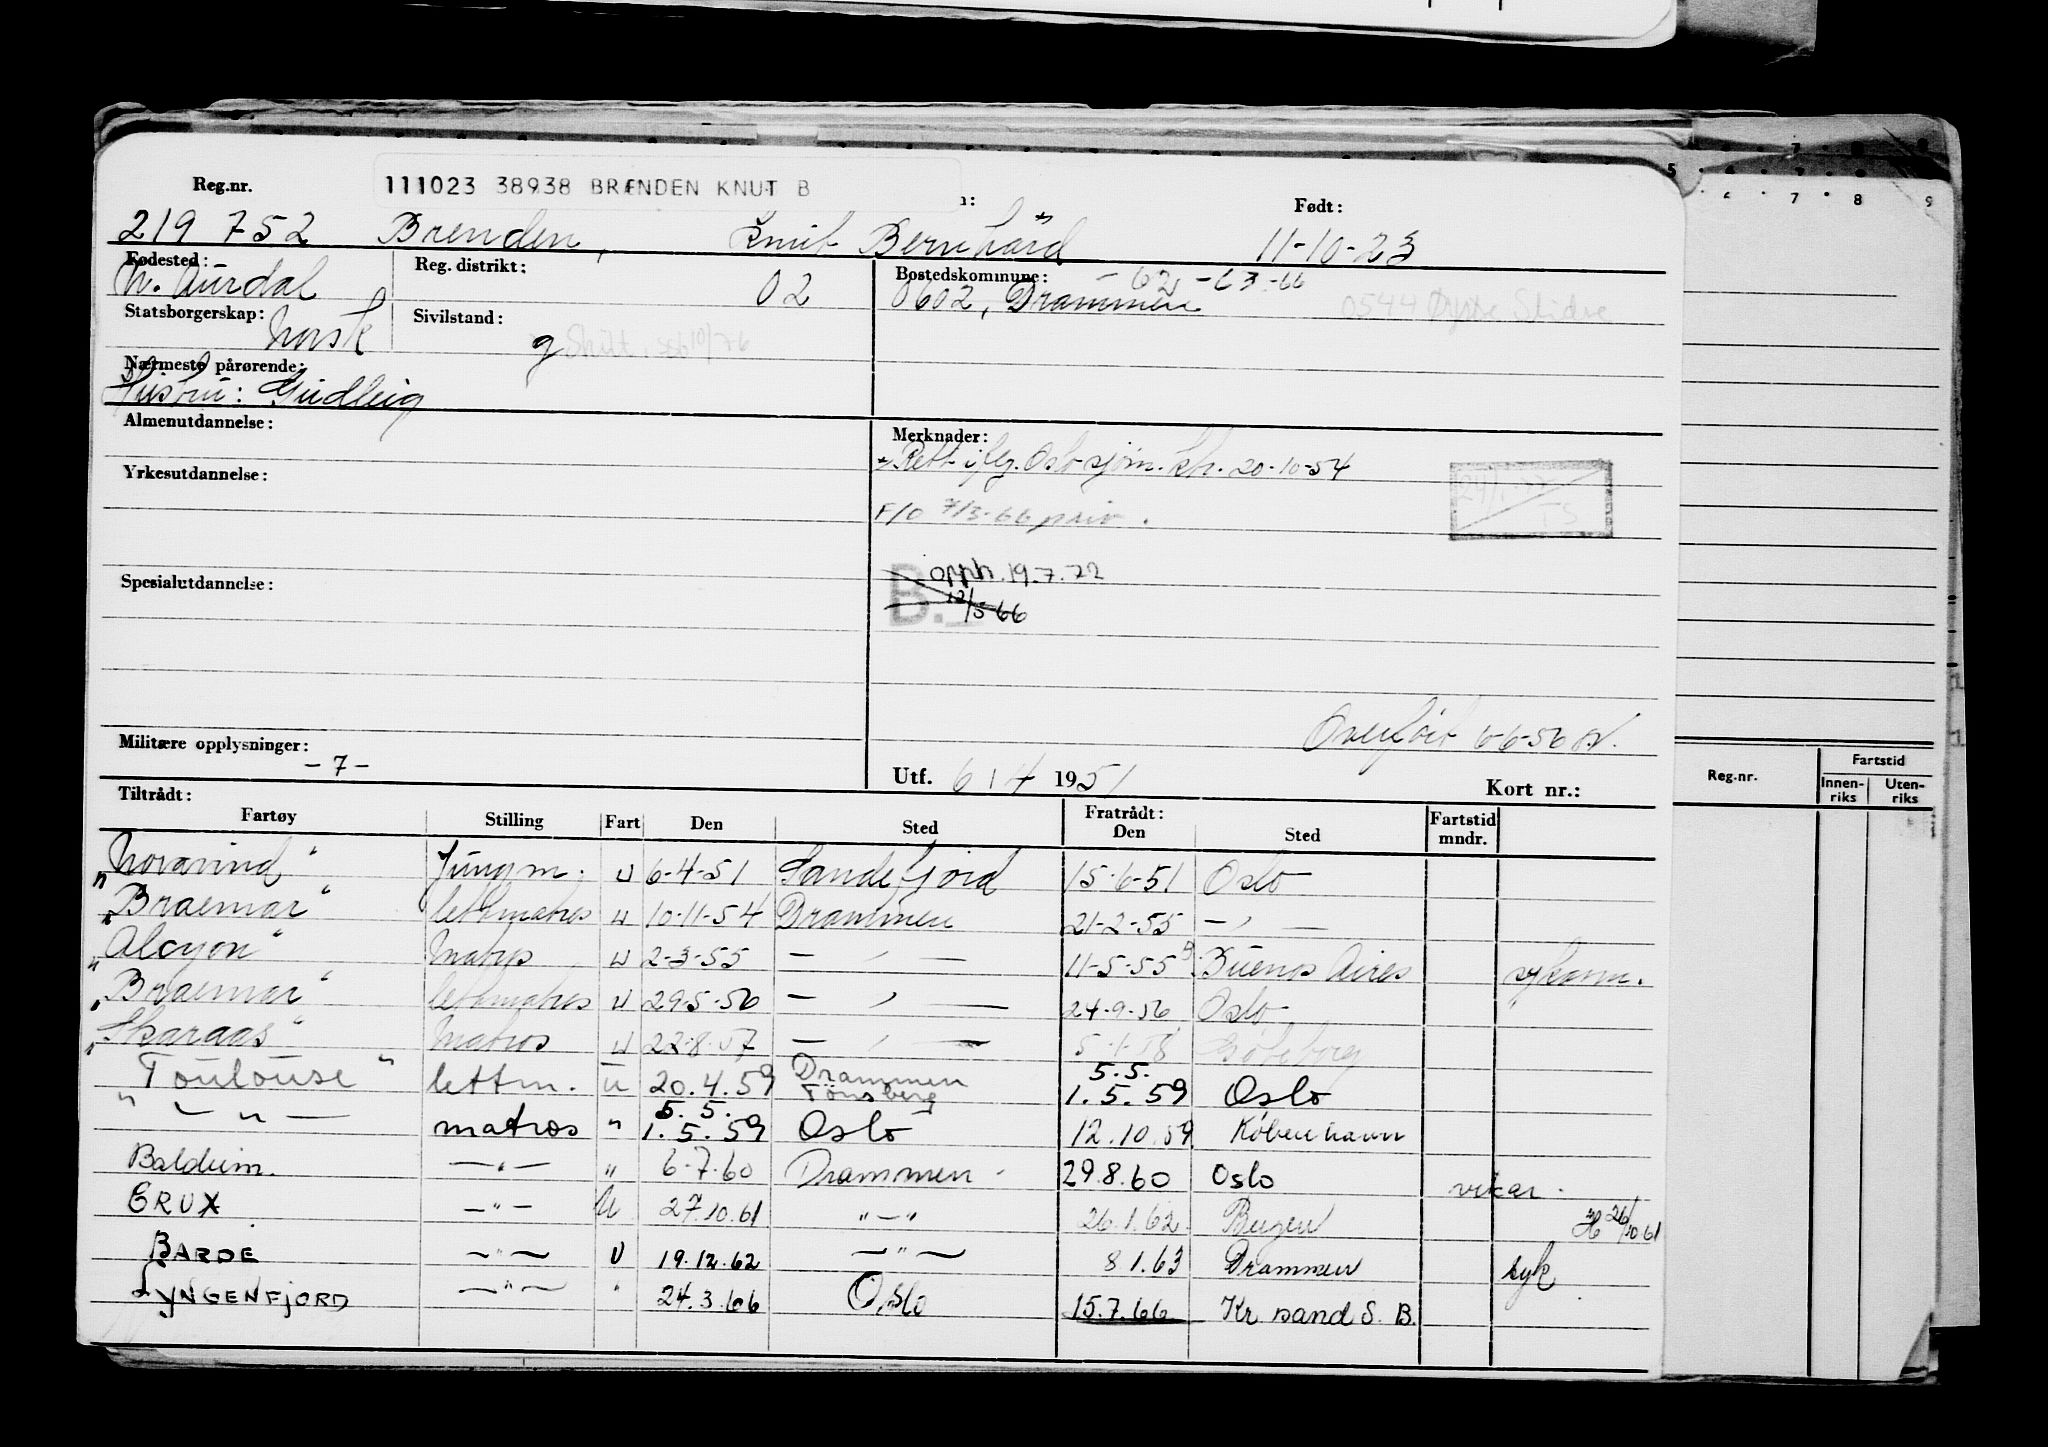 Reg.nr. 111023 38938 BRÆNDEN KNUT B n: Født:
219 752 Brenden, Knut Bernhard 11-10-23
Fødested: Reg. distrikt: Bostedskommune: -62 -63 -66
N. Aurdal 02 0602, Drammen 0544 Øystre Slidre
Statsborgerskap: Sivilstand:
Norsk g Skilt
Nærmeste pårørende:
Hustru: Gudleig
Almenutdannelse: Merknader:
* Rett iflg. Oslo sjøm. ktr. 20-10-54
Yrkesutdannelse:
F/O 7/3-66 priv.
Spesialutdannelse: B. opph. 19.7.72
12/5 66
Overført 6-6-56
Militære opplysninger: -7-
Utf. 6/4 1951 Kort nr.:
Tiltrådt: Fratrådt:
Fartøy Stilling Fart Den Sted Den Sted Fartstid mndr.
"Norvind" Jungm. U 6-4-51 Sandefjord 15-6-51 Oslo
"Braemar" lettmatros U 10-11-54 Drammen 21-2-55 — " —
"Alcyon" Matros U 2-3-55 — " — 11-5-55 Buenos Aires sykom.
"Braemar" lettmatros U 29-5-56 — " — 24-9-56 Oslo
"Skaraas" Matros U 22-8-57 — " — 5-1-58 Gøteborg
"Toulouse" lettm. U 20.4.59 Drammen Tønsberg 5.5. 1.5.59 Oslo
" — " — matros " 5.5. 1.5.59 Oslo 12.10.59 København
Baldrim. — " — " 6-7-60 Drammen 29.8.60 Oslo vikar.
CRUX — " — U 27.10.61 " — " 26.1.62 Bergen 26/10 61
BARDE — " — U 19.12.62 — " — 8 1.63 Drammen syk
LYNGENFJORD — " — " 24.3.66 Oslo 15.7.66 Kr. sand S. B.
5 6 7 8 9
Reg.nr. Fartstid
Innenriks Utenriks